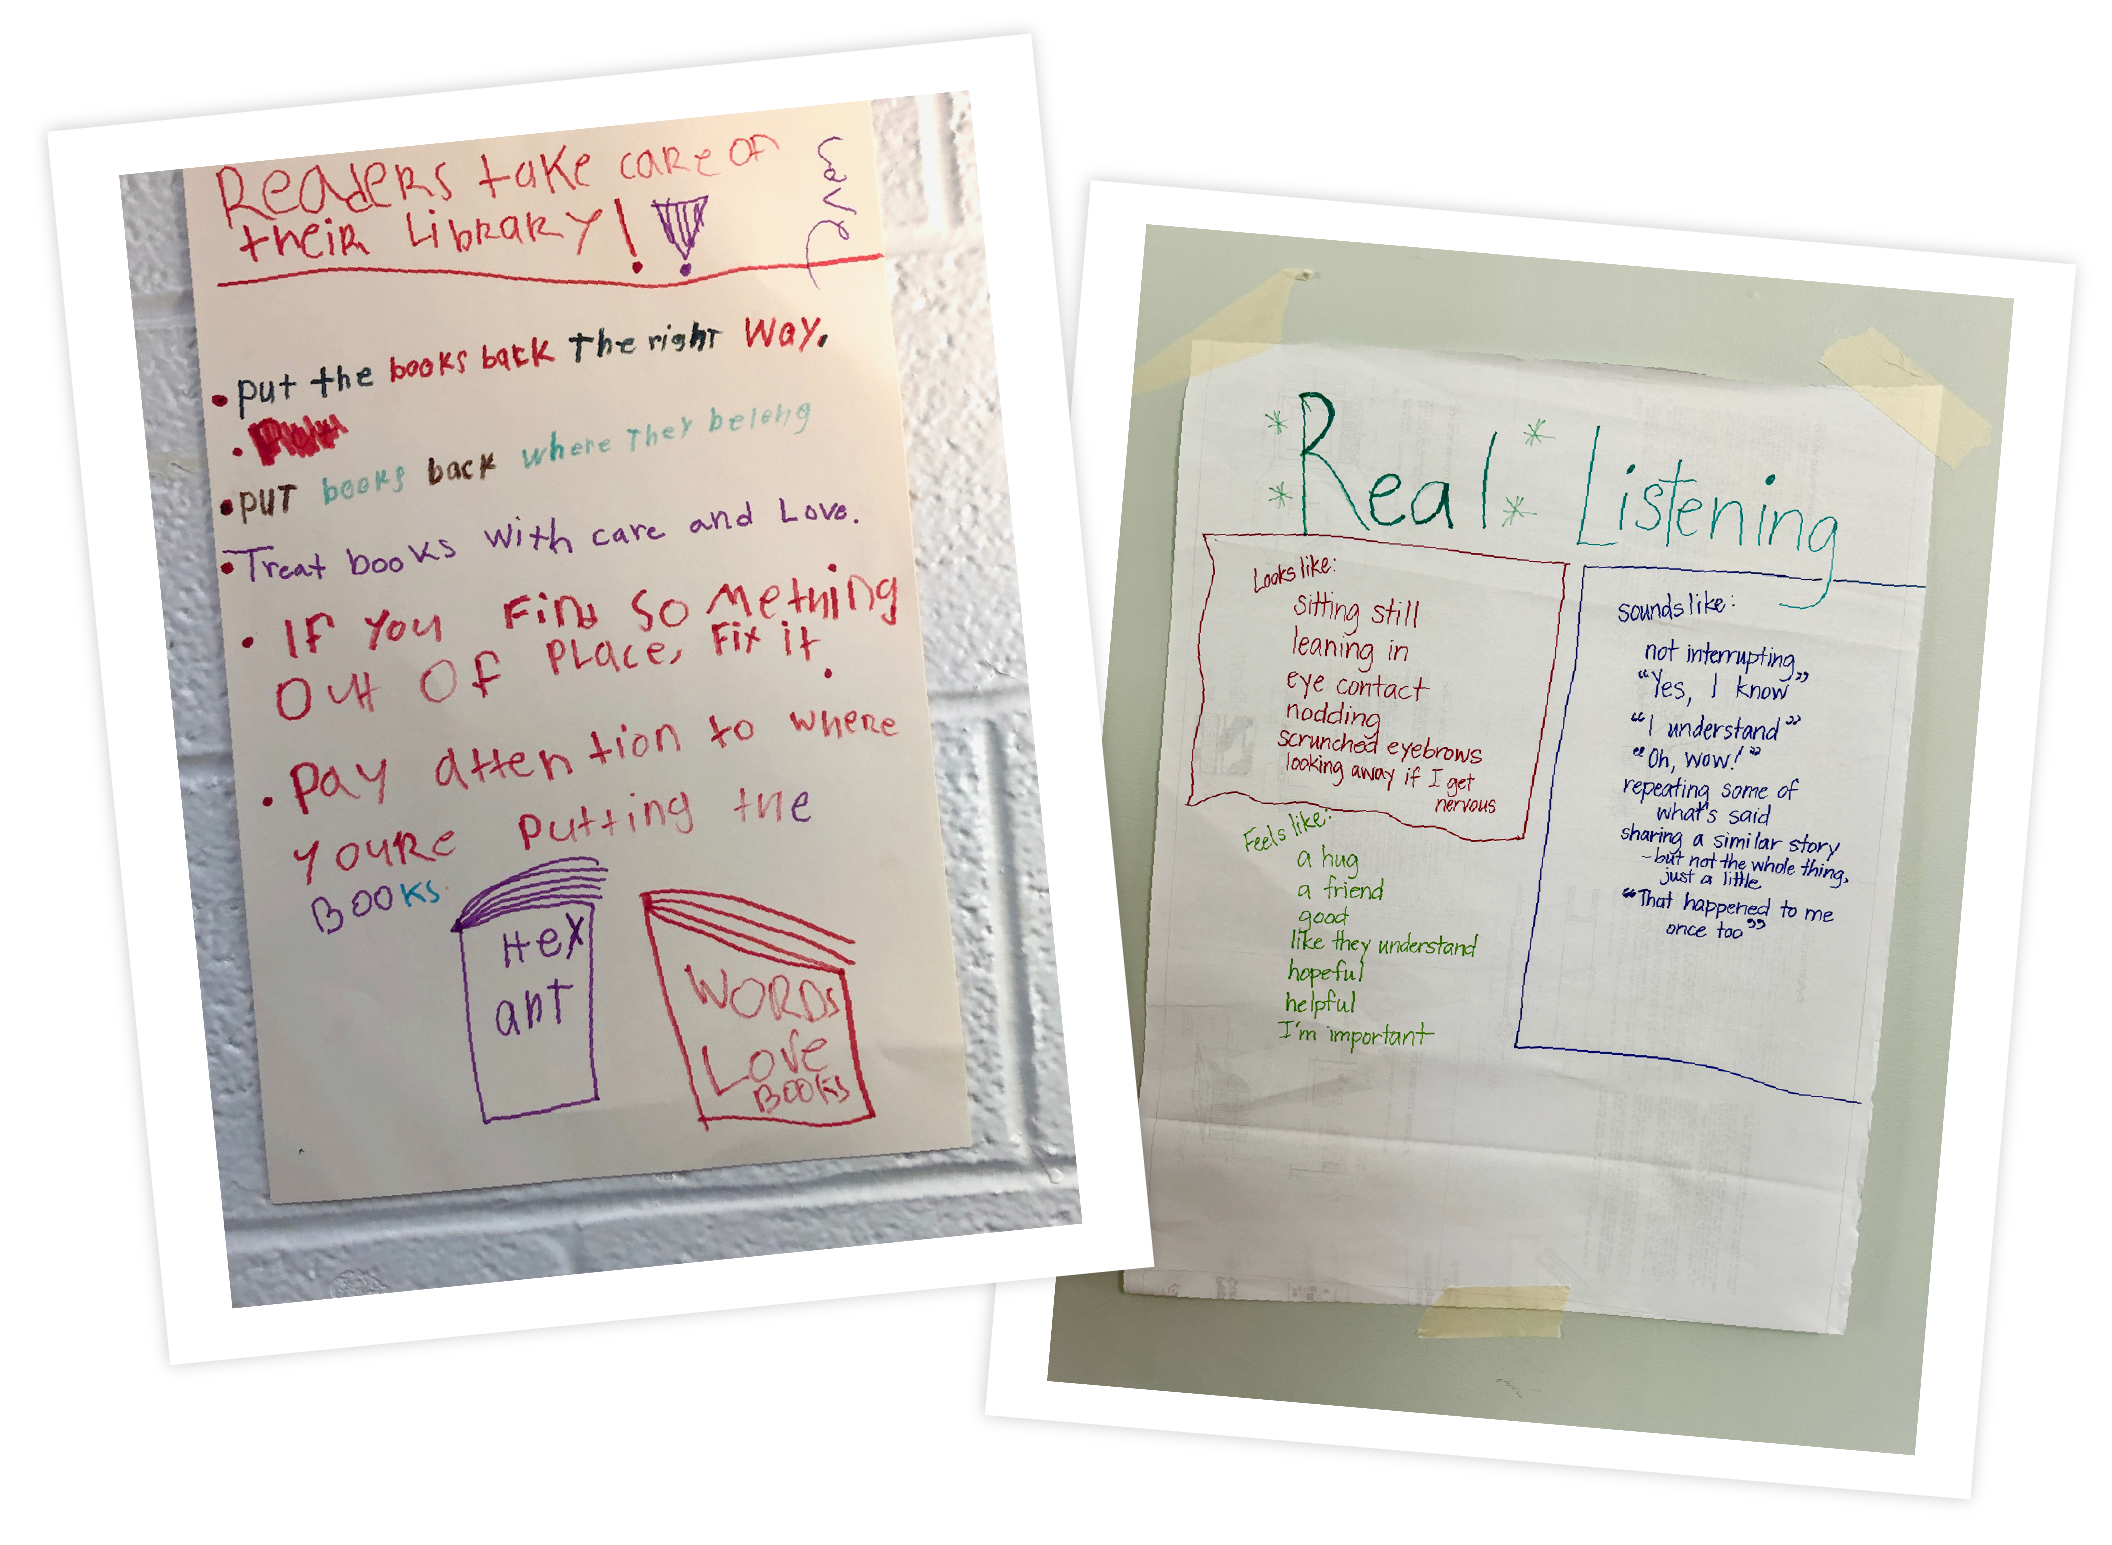 Readers take care of
their Library!
Love
• put the books back The right Way.
•
• PUT books back where They belong
• Treat books with care and Love.
• If You Find SoMething
Out Of PLace, Fix it.
• Pay attention to where
youRe Putting the
BOOKS.
Hex
ant
WORDS
Love
BOOKS
Real Listening
Looks like:
sitting still
leaning in
eye contact
nodding
scrunched eyebrows
looking away if I get
nervous
Feels like:
a hug
a friend
good
like they understand
hopeful
helpful
I'm important
sounds like:
not interrupting
“Yes, I know”
“I understand”
“Oh, wow!”
repeating some of
what's said
sharing a similar story
- but not the whole thing,
just a little
“That happened to me
once too”